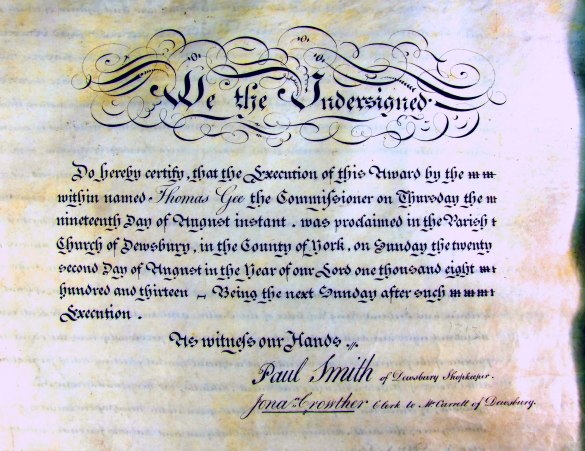 We the Undersigned
Do hereby certify, that the Execution of this Award by the
within named Thomas Gee the Commissioner on Thursday the
nineteenth Day of August instant. was proclaimed in the Parish
Church of Dewsbury, in the County of York, on Sunday the twenty
second Day of August in the Year of our Lord one thousand eight
hundred and thirteen – Being the next Sunday after such
Execution.
As witness our Hands.
Paul Smith of Dewsbury Shopkeeper.
Jonan. Crowther Clerk to Mr Carrett of Dewsbury.